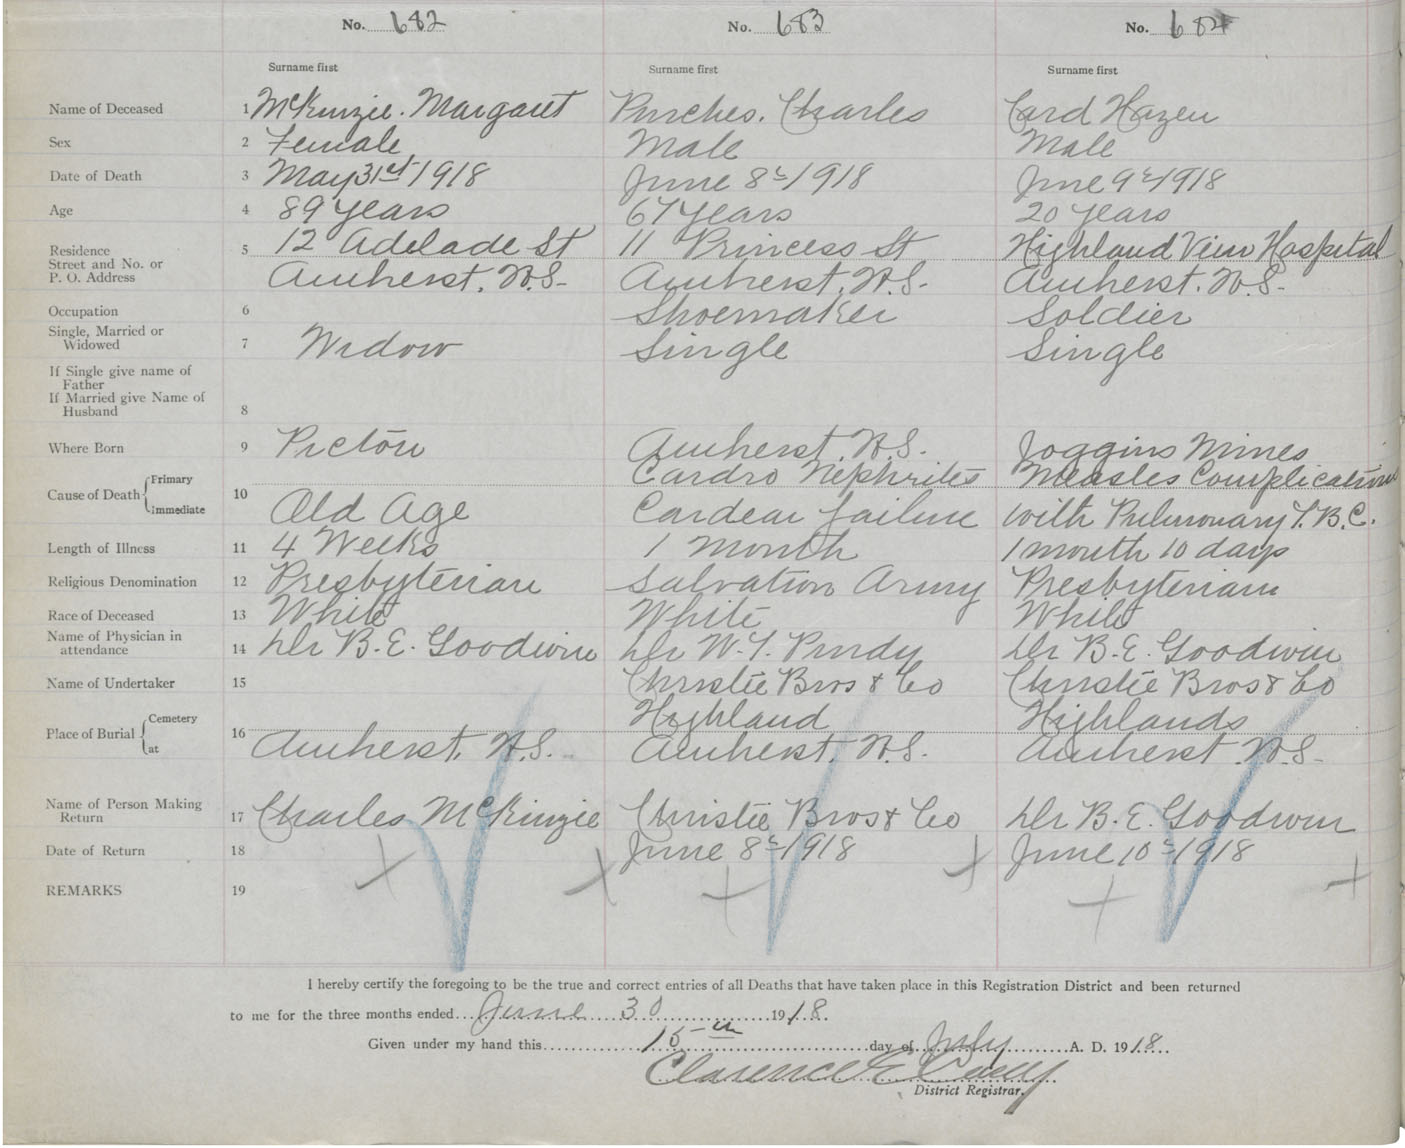 No. 682 No. 683 No. 684
Surname first Surname first Surname first
Name of Deceased 1 McKinzie. Margaret Purches. Charles Card Hazen
Sex 2 Female Male Male
Date of Death 3 May 31st 1918 June 8th 1918 June 9th 1918
Age 4 89 years 67 years 20 years
Residence 5 12 Adelade St 11 Princess St Highland View Hospital
Street and No. or
P. O. Address Amherst. N.S. Amherst. N.S. Amherst. N.S.
Occupation 6 Shoemaker Soldier
Single, Married or
Widowed 7 Widow Single Single
If Single give name of
Father
If Married give Name of
Husband 8
Where Born 9 Pictou Amherst. N.S. Joggins Mines
Cause of Death Primary 10 Cardro Nephrites Measles Complication
Immediate Old Age Cardear failure with Pulmonary T.B.C.
Length of Illness 11 4 Weeks 1 Month 1 month 10 days
Religious Denomination 12 Presbyterian Salvation Army Presbyterian
Race of Deceased 13 White White White
Name of Physician in
attendance 14 Dr B.E. Goodwin Dr W.T. Purdy Dr B.E. Goodwin
Name of Undertaker 15 Christie Bros & Co Christie Bros & Co
Place of Burial Cemetery 16 Highland Highlands
at Amherst. N.S. Amherst. N.S. Amherst N.S.
Name of Person Making
Return 17 Charles McKinzie Christie Bros & Co Dr B.E. Goodwin
Date of Return 18 June 8th 1918 June 10th 1918
REMARKS 19
I hereby certify the foregoing to be the true and correct entries of all Deaths that have taken place in this Registration District and been returned
to me for the three months ended June 30 1918.
Given under my hand this 15th day of July A. D. 1918.
Clarence E
District Registrar.